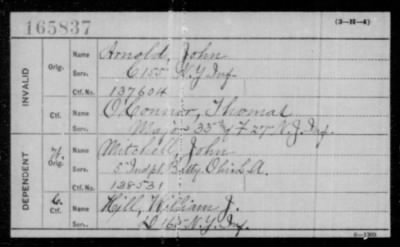 165837
(3-H-4)
INVALID
Orig.
Name Arnold, John
Serv. C 155 N.Y. Inf.
Ctf. No. 137604
Ctf.
Name O'Connor, Thomas
Serv. 35 & F 27 N.J. Inf.
DEPENDENT
Orig.
Name Mitchell, John
Serv. 5 Indpt. Batty. Ohio L.A.
Ctf. No. 128531
C.
Ctf.
Name Hill, William J.
Serv. D 165 N.Y. Inf.